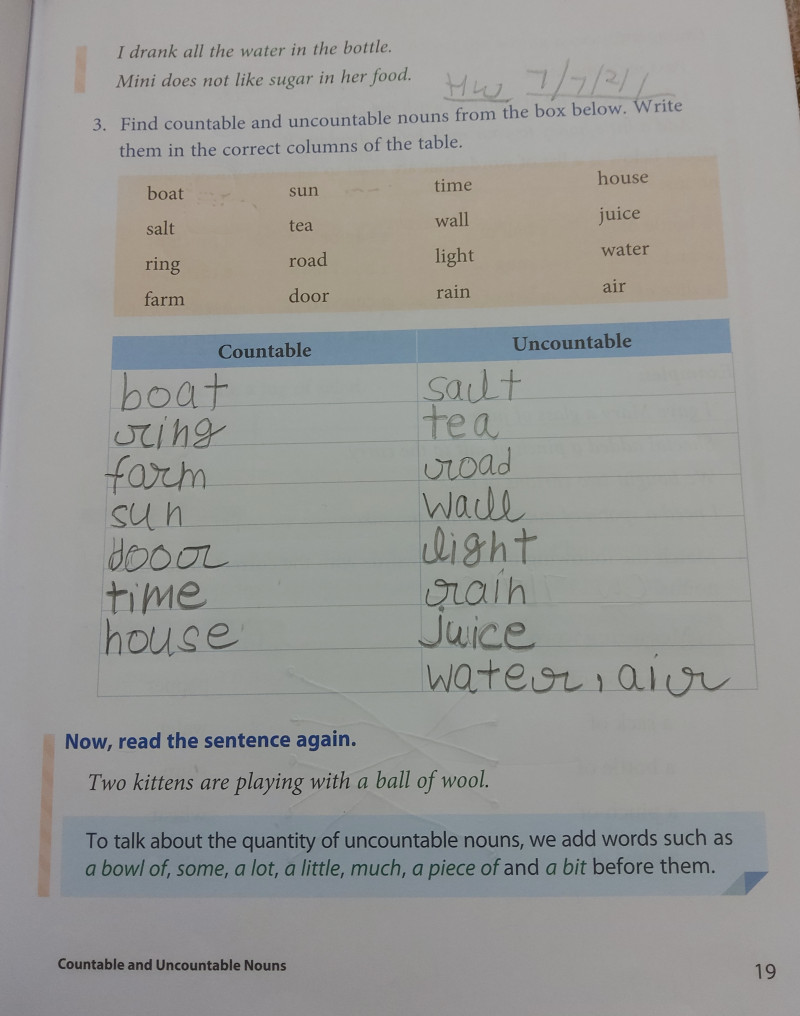 I drank all the water in the bottle.
Mini does not like sugar in her food.
HW 7/7/21
3. Find countable and uncountable nouns from the box below. Write
them in the correct columns of the table.
boat sun time house
salt tea wall juice
ring road light water
farm door rain air
Countable Uncountable
boat salt
ring tea
farm road
sun wall
door light
time rain
house juice
water, air
Now, read the sentence again.
Two kittens are playing with a ball of wool.
To talk about the quantity of uncountable nouns, we add words such as
a bowl of, some, a lot, a little, much, a piece of and a bit before them.
Countable and Uncountable Nouns 19